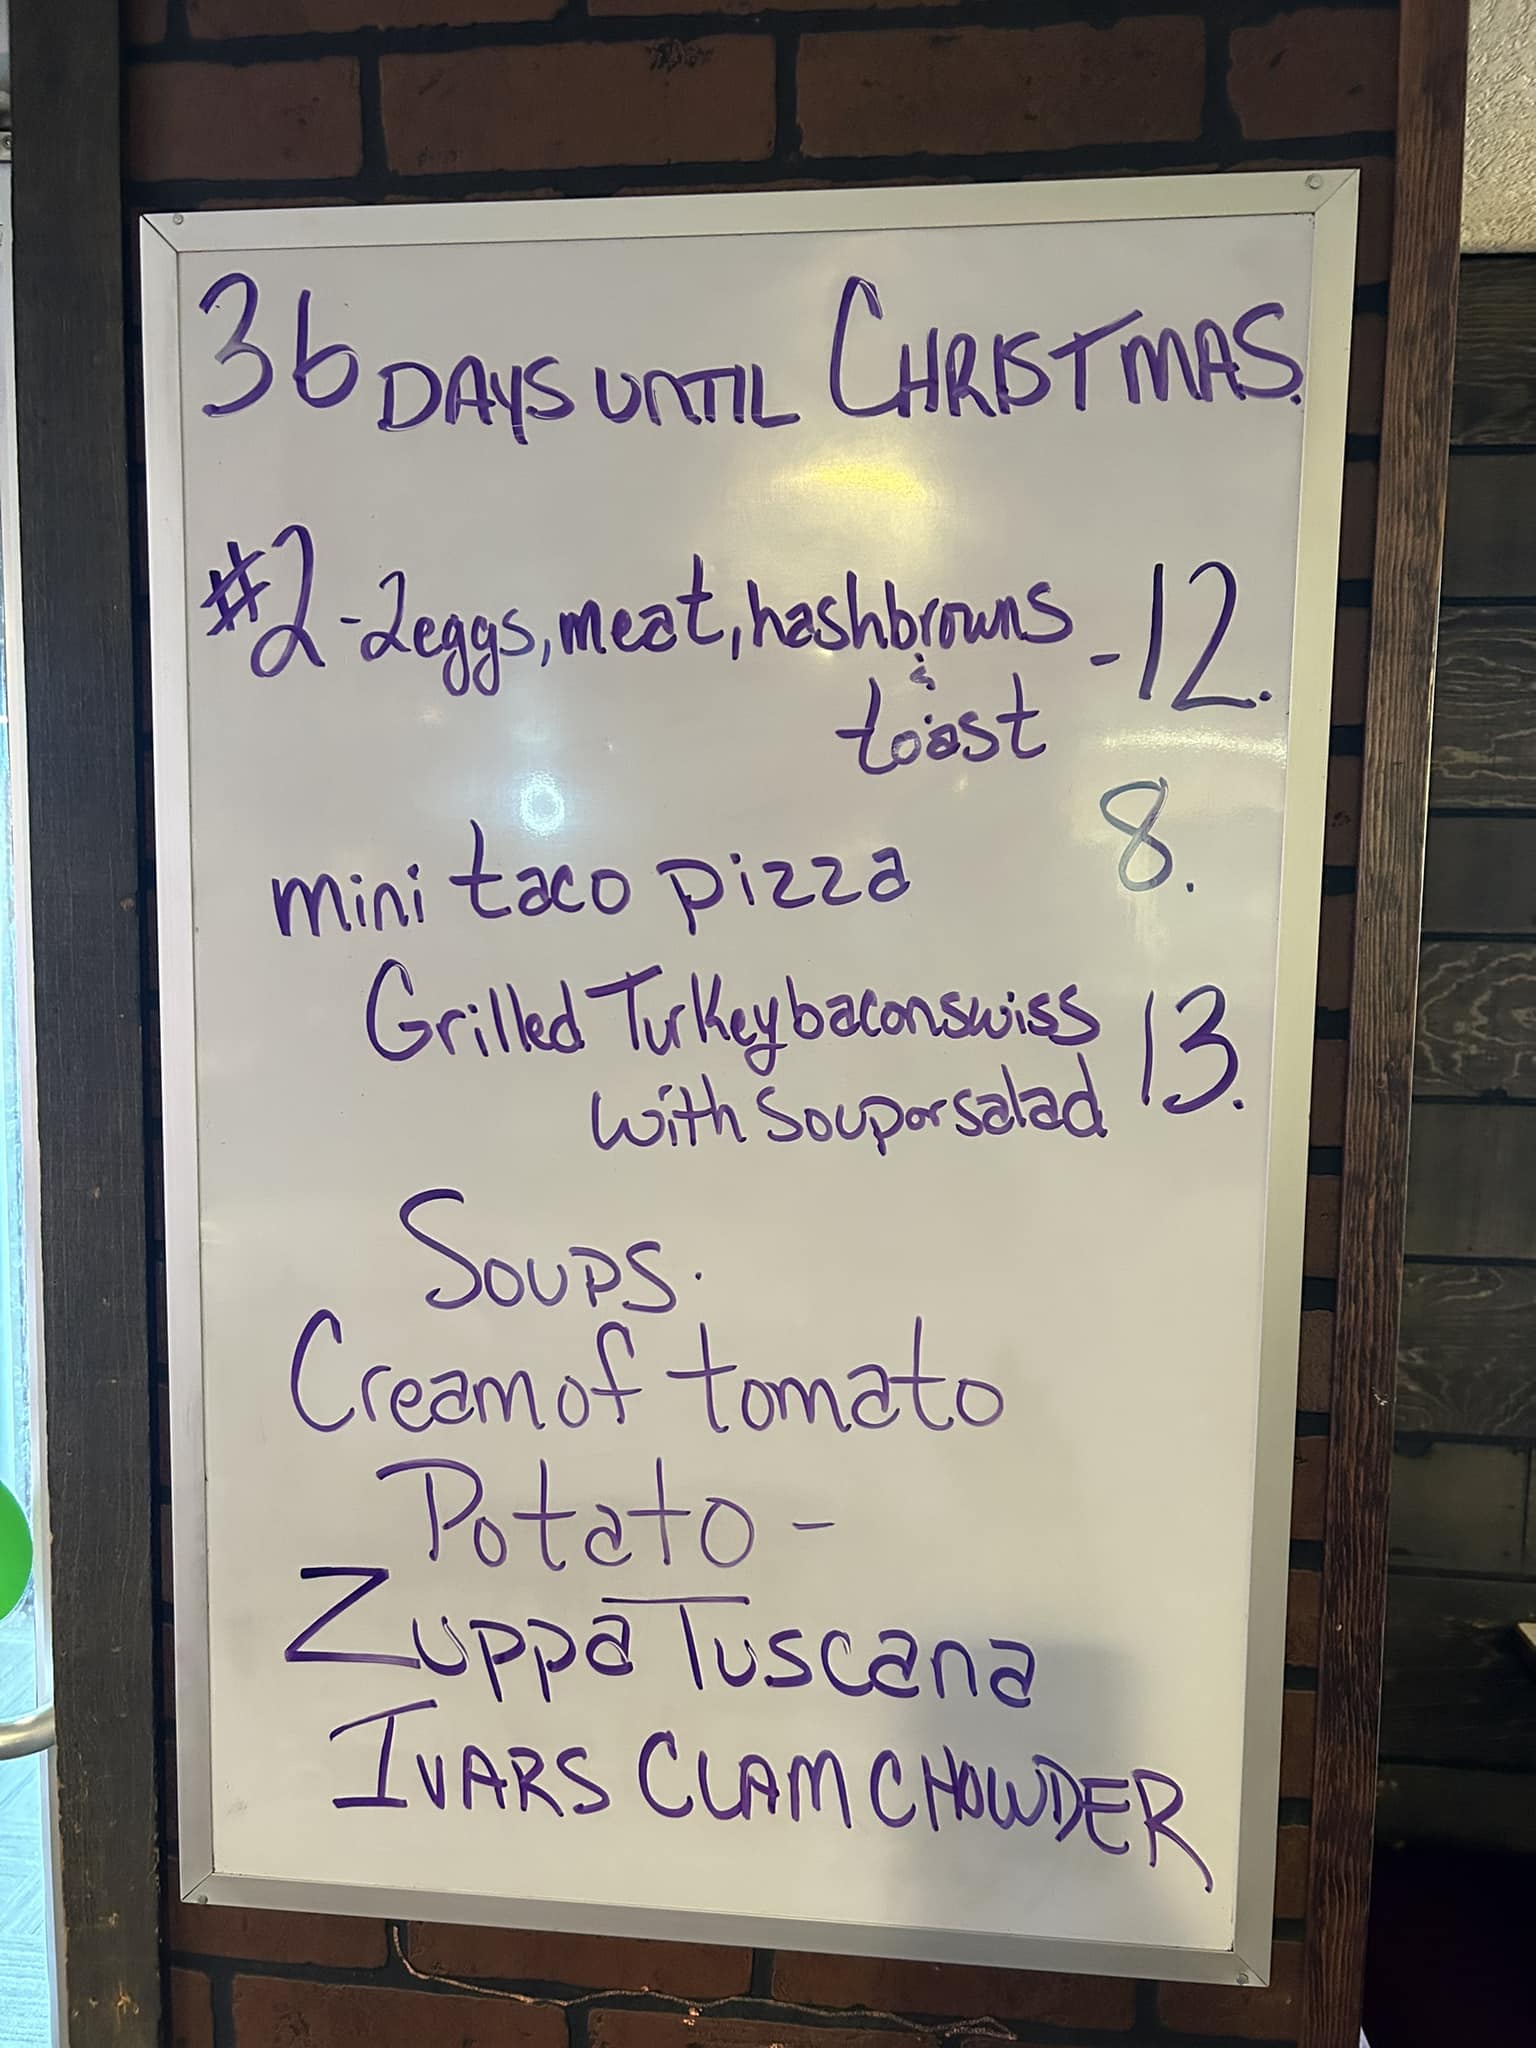 36 DAYS UNTIL CHRISTMAS.
#2 - 2 eggs, meat, hashbrowns - 12.
& toast
mini taco pizza 8.
Grilled Turkey bacon swiss 13.
with soup or salad
SOUPS.
Cream of tomato
Potato -
Zuppa Tuscana
IVARS CLAM CHOWDER